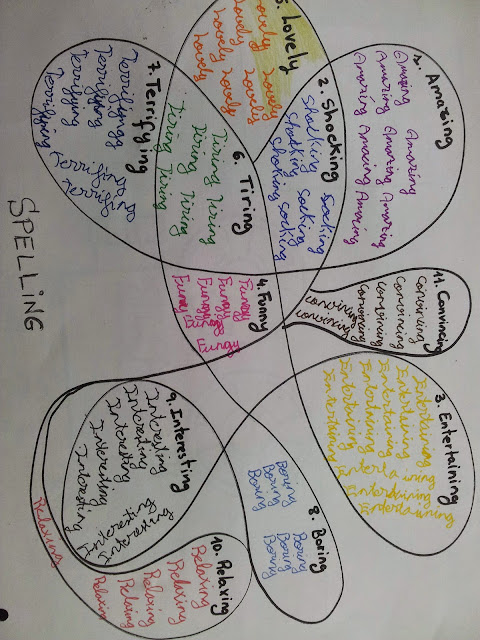 1. Amazing
Amazing Amazing
Amazing Amazing Amazing
Amazing Amazing Amazing
2. Shocking
Shocking Socking
Shocking Socking
Shocking Socking
5. Lovely
Lovely Lovely
Lovely Lovely
Lovely Lovely
Lovely Lovely
6. Tiring
Tiring Tiring
Tiring Tiring
Tiring Tiring
7. Terrifying
Terrifying
Terrifying
Terrifying
Terrifying
4. Funny
Funny
Funny
Funny
Funny
11. Convincing
Convincing
Convincing
Convincing
Convincing
Convincing
convincing
convincing
3. Entertaining
Entertaining
Entertaining
Entertaining
Entertaining
Entertaining
Entertaining
Entertaining
Entertaining
Entertainings
8. Boring
Boring Boring
Boring Boring
Boring Boring
9. Interesting
Interesting
Interesting
Interesting
Interesting
Interesting
10. Relaxing
Relaxing
Relaxing
Relaxing
Relaxing
Relaxing
Relaxing
SPELLING